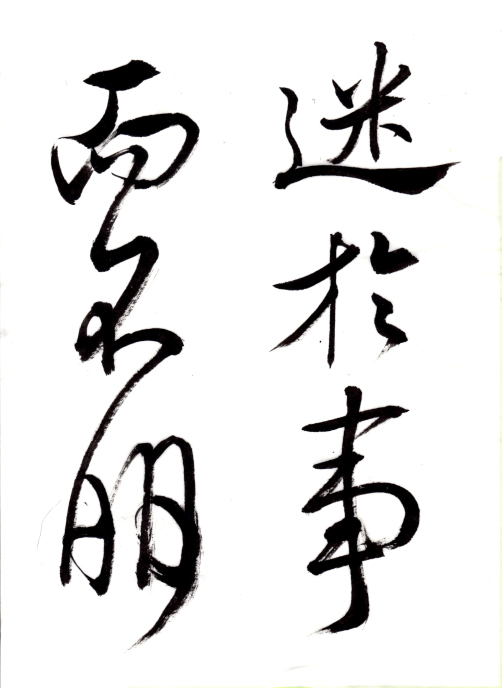 迷於事
而不明